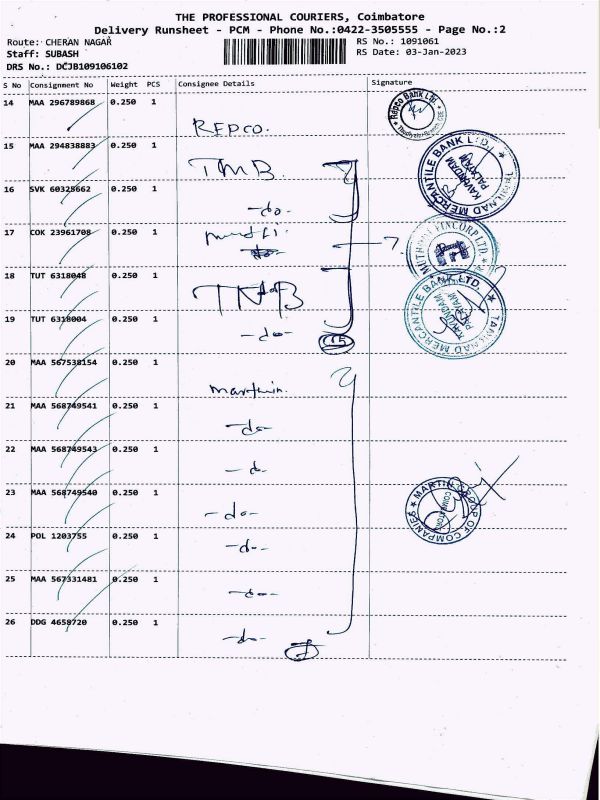 THE PROFESSIONAL COURIERS, Coimbatore
Delivery Runsheet - PCM - Phone No.:0422-3505555 - Page No.:2
Route: CHERAN NAGAR RS No.: 1091061
Staff: SUBASH RS Date: 03-Jan-2023
DRS No.: DCJB109106102
S No Consignment No Weight PCS Consignee Details Signature
14 MAA 296789868 0.250 1 REPCO. Repco Bank Ltd
15 MAA 294838883 0.250 1 TMB TAMILNAD MERCANTILE BANK LTD. KAVUNDAM PALAYAM
16 SVK 60325662 0.250 1 -do-
17 COK 23961708 0.250 1 FINCORP LTD.
18 TUT 6318048 0.250 1 TMB TAMILNAD MERCANTILE BANK LTD. KAVUNDAM PALAYAM
19 TUT 6318004 0.250 1 -do-
20 MAA 567538154 0.250 1
21 MAA 568749541 0.250 1 -do-
22 MAA 568749543 0.250 1 -d-
23 MAA 568749540 0.250 1 -do- MARTIN GROUP OF COMPANIES
24 POL 1203755 0.250 1 -do-
25 MAA 567331481 0.250 1 -do-
26 DDG 4658720 0.250 1 -do- 7